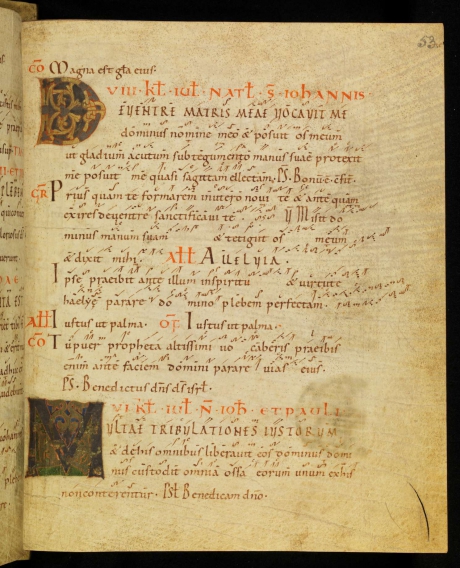 53
CO Magna est gła eius·
VIII·KŁ·IUŁ·NATŁ·S̄·IOHANNIS·
DE VENTRE MATRIS MEAE VOCAVIT ME
dominus nomine meo & posuit os meum
ut gladium acutum sub tegumento manus suae protexit
me posuit me quasi sagittam electam. PS. Bonũ ẽ cfit.
GR Prius quam te formarem in utero noui te & ante quam
exires de uentre sanctificaui te V Misit do
minus manum suam & tetigit os meum
& dixit mihi AŁŁ Alleluia.
Ipse praeibit ante illum in spiritu & uirtute
haelyę parare domino plebem perfectam.
AŁŁ Iustus ut palma. OF Iustus ut palma.
CO Tu puer propheta altissimi uocaberis praeibis
enim ante faciem domini parare uias eius.
PS. Benedictus dñs ds isrł.
VI KŁ·IUŁ·Ñ·IOH̄·ET PAULI
MULTAE TRIBULATIONES IUSTORUM
& de his omnibus liberauit eos dominus domi
nus custodit omnia ossa eorum unum ex his
non conterentur. PSŁ Benedicam dño.